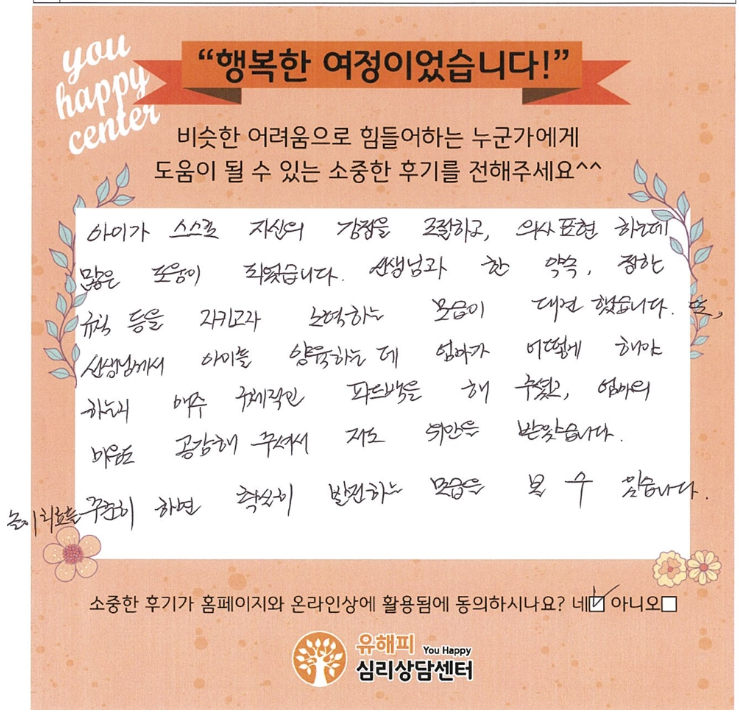 you
happy
center
“행복한 여정이었습니다!”
비슷한 어려움으로 힘들어하는 누군가에게
도움이 될 수 있는 소중한 후기를 전해주세요^^
아이가 스스로 자신의 감정을 조절하고, 의사표현 하는데
많은 도움이 되었습니다. 선생님과 한 약속, 정한
규칙 등을 지키고자 노력하는 모습이 대견 했습니다. 또,
선생님께서 아이를 양육하는 데 엄마가 어떻게 해야
하는지 매우 구체적인 피드백을 해 주셨고, 엄마의
마음도 공감해 주셔서 저도 위안을 받았습니다.
놀이치료를 꾸준히 하면 확실히 발전하는 모습을 볼 수 있습니다.
소중한 후기가 홈페이지와 온라인상에 활용됨에 동의하시나요? 네☑ 아니오□
유해피 You Happy
심리상담센터